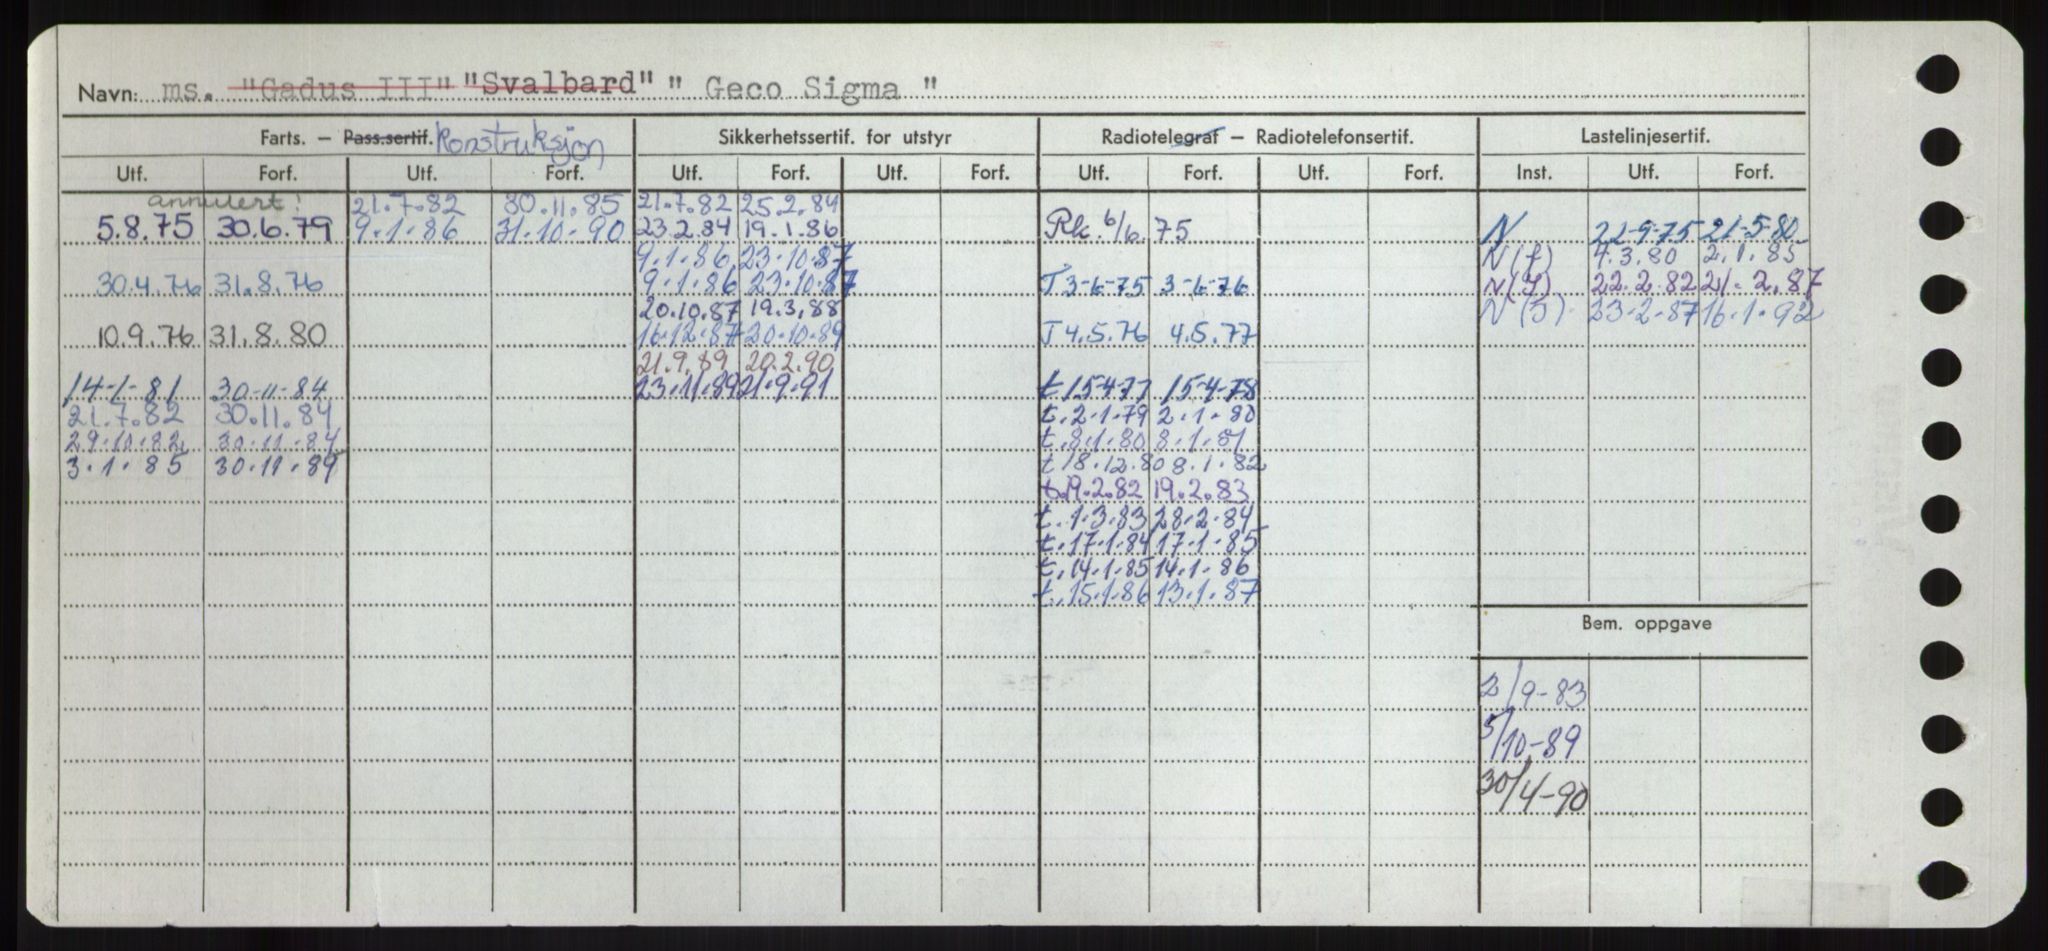 Navn: ms. "Gadus III" "Svalbard" " Geco Sigma "
Farts. – Pass.sertif. Konstruksjon Sikkerhetssertif. for utstyr Radiotelegraf – Radiotelefonsertif. Lastelinjesertif.
Utf. Forf. Utf. Forf. Utf. Forf. Utf. Forf. Utf. Forf. Utf. Forf. Inst. Utf. Forf.
annulert! 21.7.82 30.11.85 21.7.82 25.2.84
5.8.75 30.6.79 9.1.86 31.10.90 23.2.84 19.1.86 Rk. 6/6.75 N 22-9-75 21-5-80
9.1.86 23.10.87 N(f) 7.3.80 2.1.85
30.4.76 31.8.76 9.1.86 23.10.87 T 3-6-75 3-6-76 N(J) 22.2.82 21.2.87
20.10.87 19.3.88 N(J). 23.2.87 16.1.92
10.9.76 31.8.80 16.12.87 20.10.89 T 4.5.76 4.5.77
21.9.89 20.2.90
14-1-81 30-11-84 23.11.89 21.9.91 t 15-4-77 15-4-78
21.7.82 30.11.84 t.2.1.79 2.1.80
29.10.82 30.11.84 t.8.1.80 8.1.81
3.1.85 30.11.89 t 18.12.80 8.1.82
t.19.2.82 19.2.83
t.1.3.83 28.2.84
t.17.1.84 17.1.85
t.14.1.85 14.1.86
t.15.1.86 13.1.87
Bem. oppgave
2/9-83
5/10-89
30/4-90